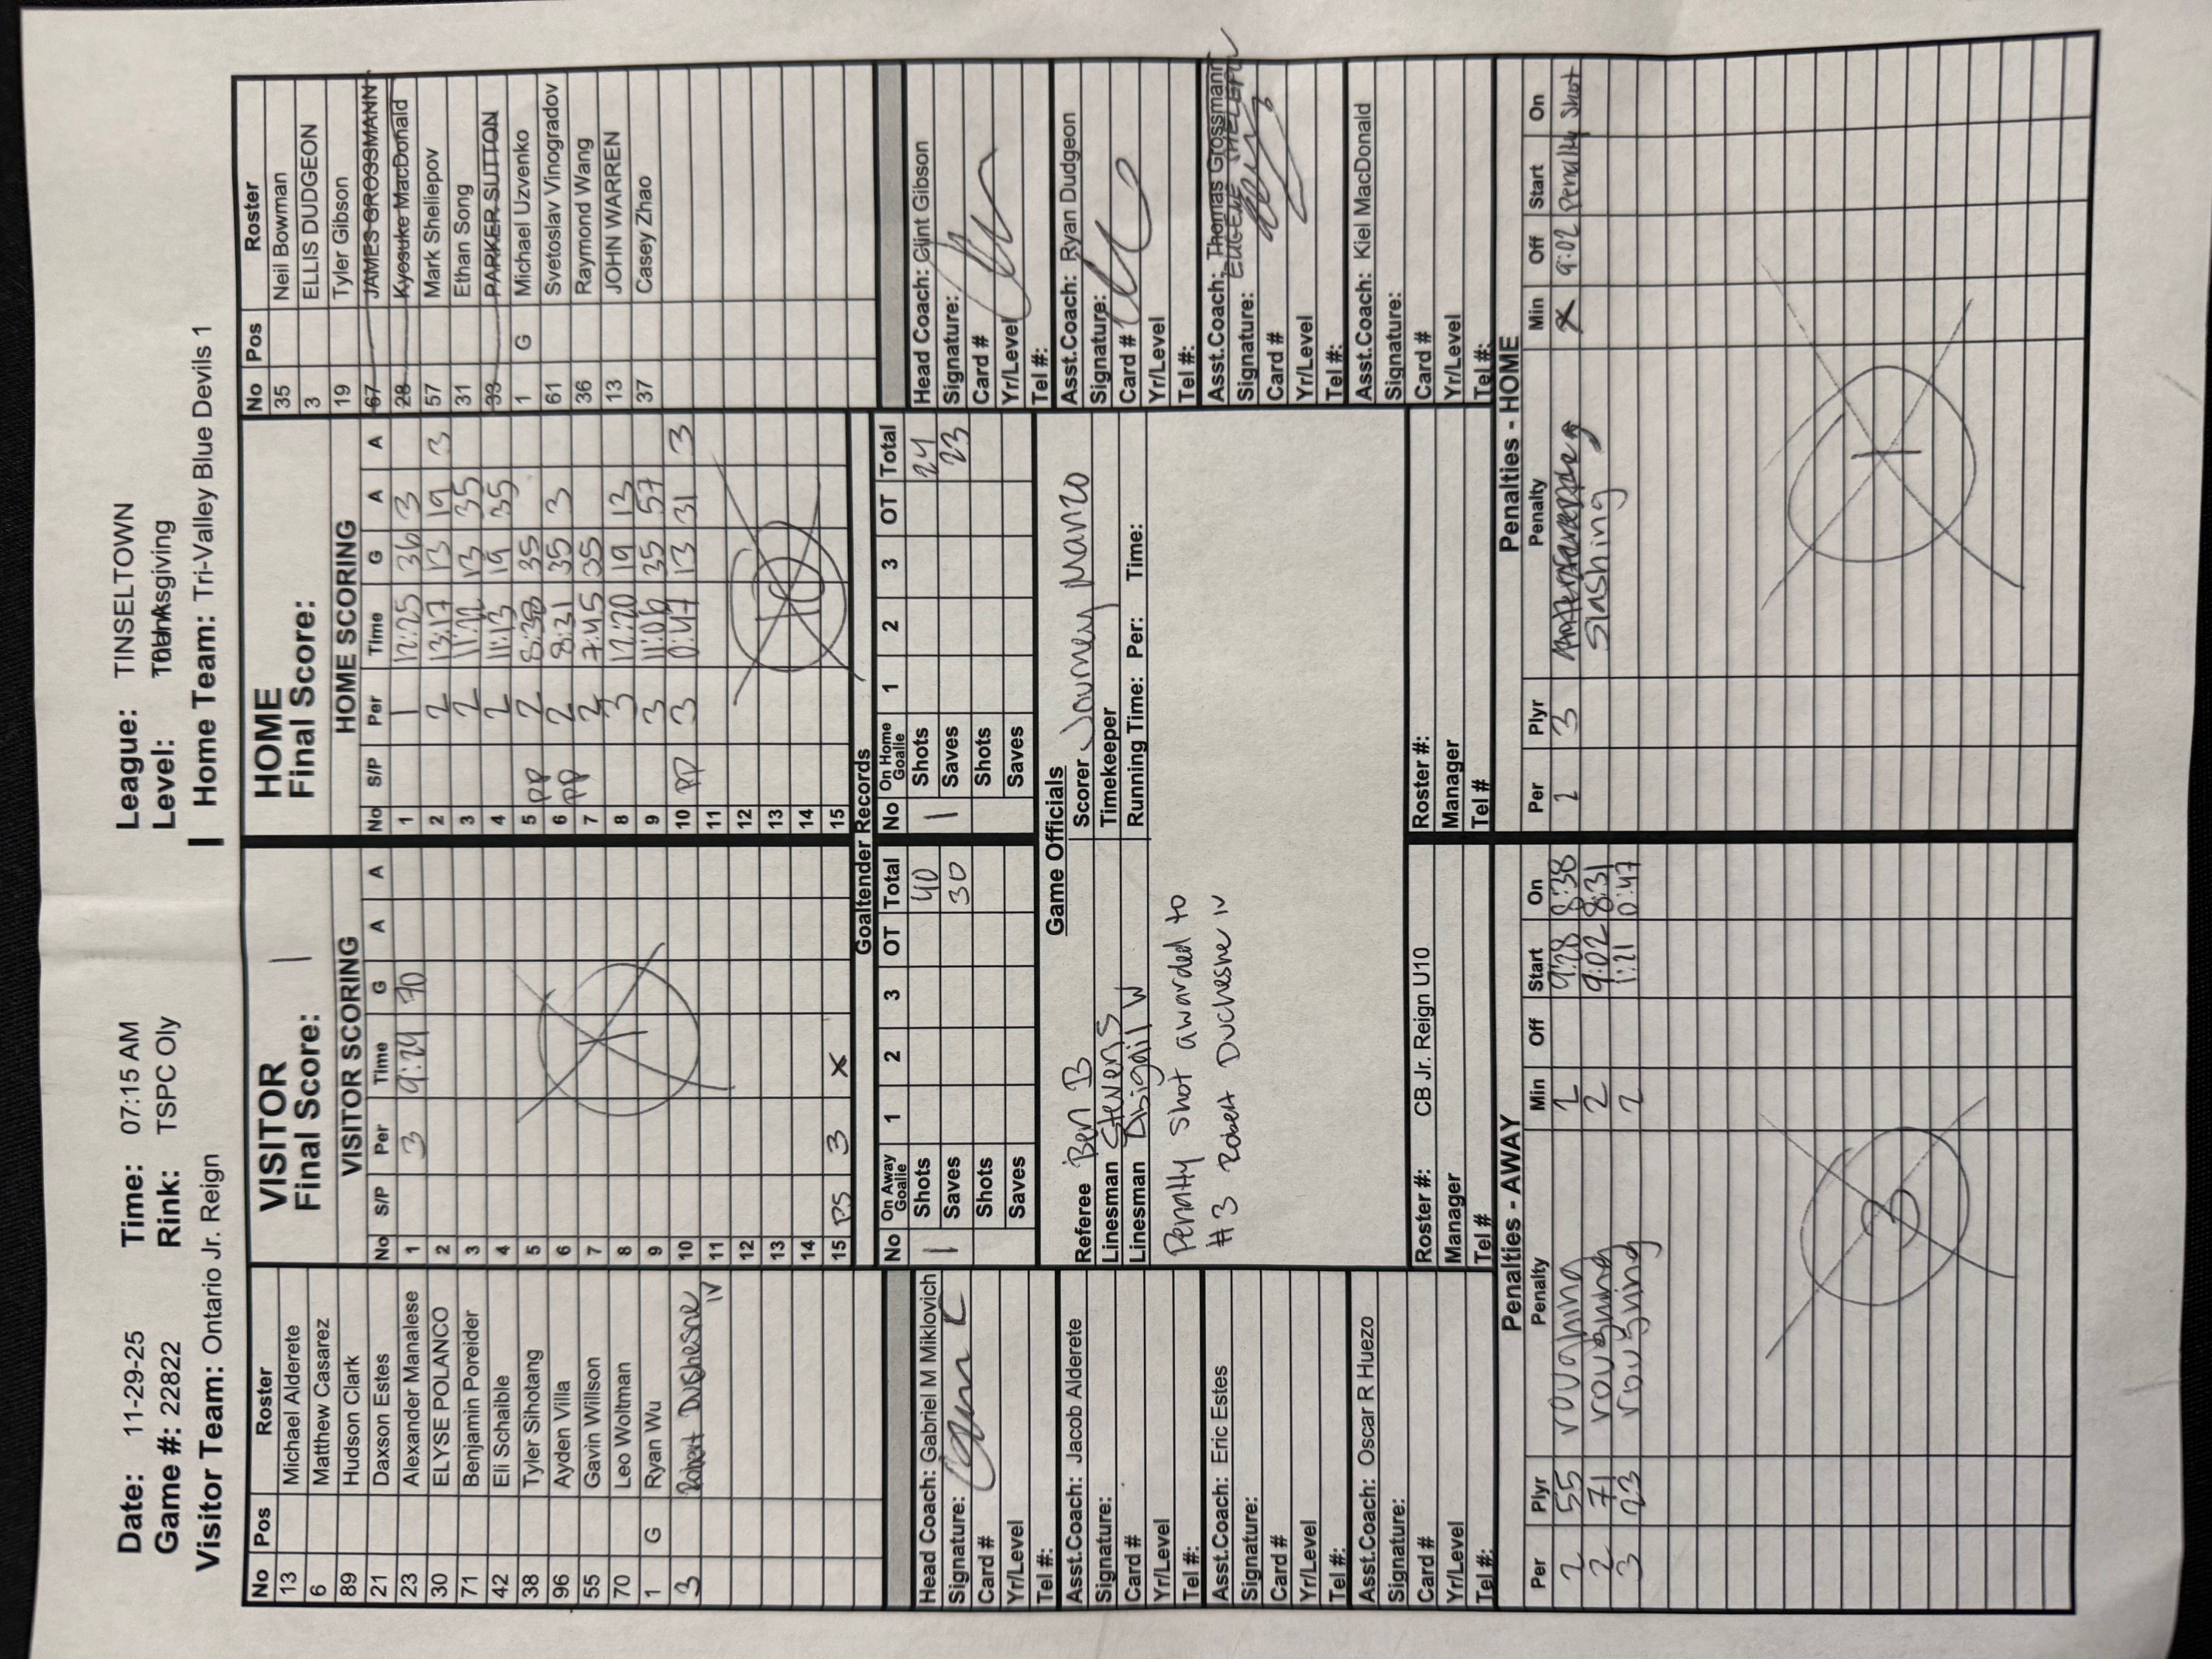 Date: 11-29-25 Time: 07:15 AM League: TINSELTOWN
Game #: 22822 Rink: TSPC Oly Level: Thanksgiving
Visitor Team: Ontario Jr. Reign | Home Team: Tri-Valley Blue Devils 1
VISITOR
Final Score: 1
HOME
Final Score:
No Pos Roster
13 Michael Alderete
6 Matthew Casarez
89 Hudson Clark
21 Daxson Estes
23 Alexander Manalese
30 ELYSE POLANCO
71 Benjamin Poreider
42 Eli Schaible
38 Tyler Sihotang
96 Ayden Villa
55 Gavin Willson
70 Leo Woltman
1 G Ryan Wu
3 Robert Duchesne IV
VISITOR SCORING
No S/P Per Time G A A
1 3 9:24 70
2
3
4
5
6
7
8
9
10
11
12
13
14
15 PS 3 X
1
HOME SCORING
No S/P Per Time G A A
1 1 12:25 36 3
2 2 13:17 13 19 3
3 2 11:22 13 35
4 2 11:13 19 35
5 PP 2 8:38 35
6 PP 2 8:31 35 3
7 2 7:45 35
8 3 12:20 19 13
9 3 11:06 35 57
10 PP 3 0:47 13 31 3
11
12
13
14
15
10
No Pos Roster
35 Neil Bowman
3 ELLIS DUDGEON
19 Tyler Gibson
67 JAMES GROSSMANN
28 Kyosuke MacDonald
57 Mark Sheliepov
31 Ethan Song
33 PARKER SUTTON
1 G Michael Uzvenko
61 Svetoslav Vinogradov
36 Raymond Wang
13 JOHN WARREN
37 Casey Zhao
Goaltender Records
No On Away Goalie 1 2 3 OT Total
1 Shots 40
Saves 30
Shots
Saves
No On Home Goalie 1 2 3 OT Total
1 Shots 24
Saves 23
Shots
Saves
Head Coach: Gabriel M Miklovich
Signature:
Card #
Yr/Level
Tel #:
Asst.Coach: Jacob Alderete
Signature:
Card #
Yr/Level
Tel #:
Asst.Coach: Eric Estes
Signature:
Card #
Yr/Level
Tel #:
Asst.Coach: Oscar R Huezo
Signature:
Card #
Yr/Level
Tel #:
Game Officials
Referee Ben B Scorer Journey Manzo
Linesman Steven S Timekeeper
Linesman Abigail W Running Time: Per: Time:
Penalty shot awarded to
#3 Robert Duchesne IV
Roster #: CB Jr. Reign U10
Manager
Tel #
Roster #:
Manager
Tel #
Head Coach: Clint Gibson
Signature:
Card #
Yr/Level
Tel #:
Asst.Coach: Ryan Dudgeon
Signature:
Card #
Yr/Level
Tel #:
Asst.Coach: Thomas Grossmann
EUGENE SHELIEPOV
Signature:
Card #
Yr/Level
Tel #:
Asst.Coach: Kiel MacDonald
Signature:
Card #
Yr/Level
Tel #:
Penalties - AWAY
Per Plyr Penalty Min Off Start On
2 55 roughing 2 9:28 8:38
2 71 roughing 2 9:02 8:31
3 23 roughing 2 1:21 0:47
3
Penalties - HOME
Per Plyr Penalty Min Off Start On
2 3 slashing X 9:02 Penalty Shot
1